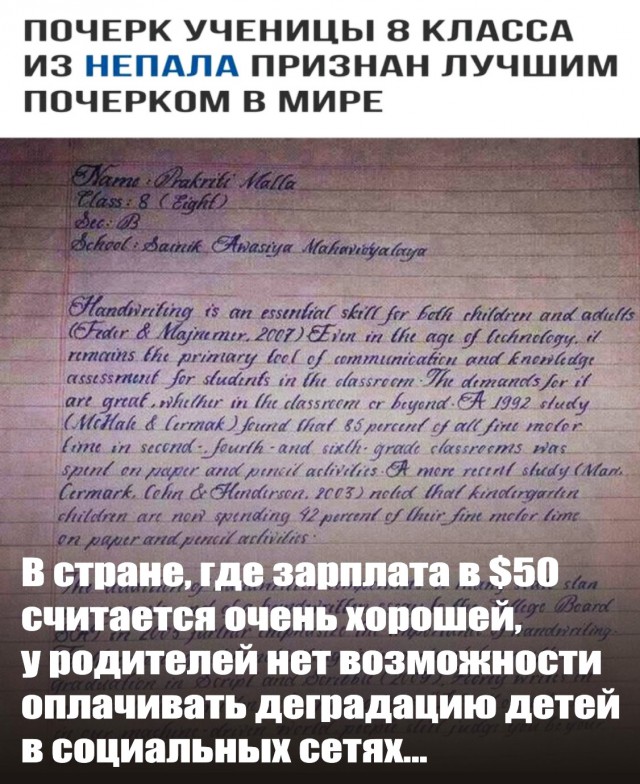 ПОЧЕРК УЧЕНИЦЫ 8 КЛАССА
ИЗ НЕПАЛА ПРИЗНАН ЛУЧШИМ
ПОЧЕРКОМ В МИРЕ
Name : Prakriti Malla
Class : 8 ( Eight )
Sec : B
School : Sainik Awasiya Mahavidyalaya
Handwriting is an essential skill for both children and adults
(Feder & Majnemer, 2007) Even in the age of technology, it
remains the primary tool of communication and knowledge
assessment for students in the classroom. The demands for it
are great, whether in the classroom or beyond. A 1992 study
(McHale & Cermak) found that 85 percent of all fine motor
time in second-, fourth- and sixth- grade classrooms was
spent on paper and pencil activities. A more recent study (Marr,
Cermark, Cohn & Henderson, 2003) noted that kindergarten
children are now spending 42 percent of their fine motor time
on paper and pencil activities.
В стране, где зарплата в $50
считается очень хорошей,
у родителей нет возможности
оплачивать деградацию детей
в социальных сетях...